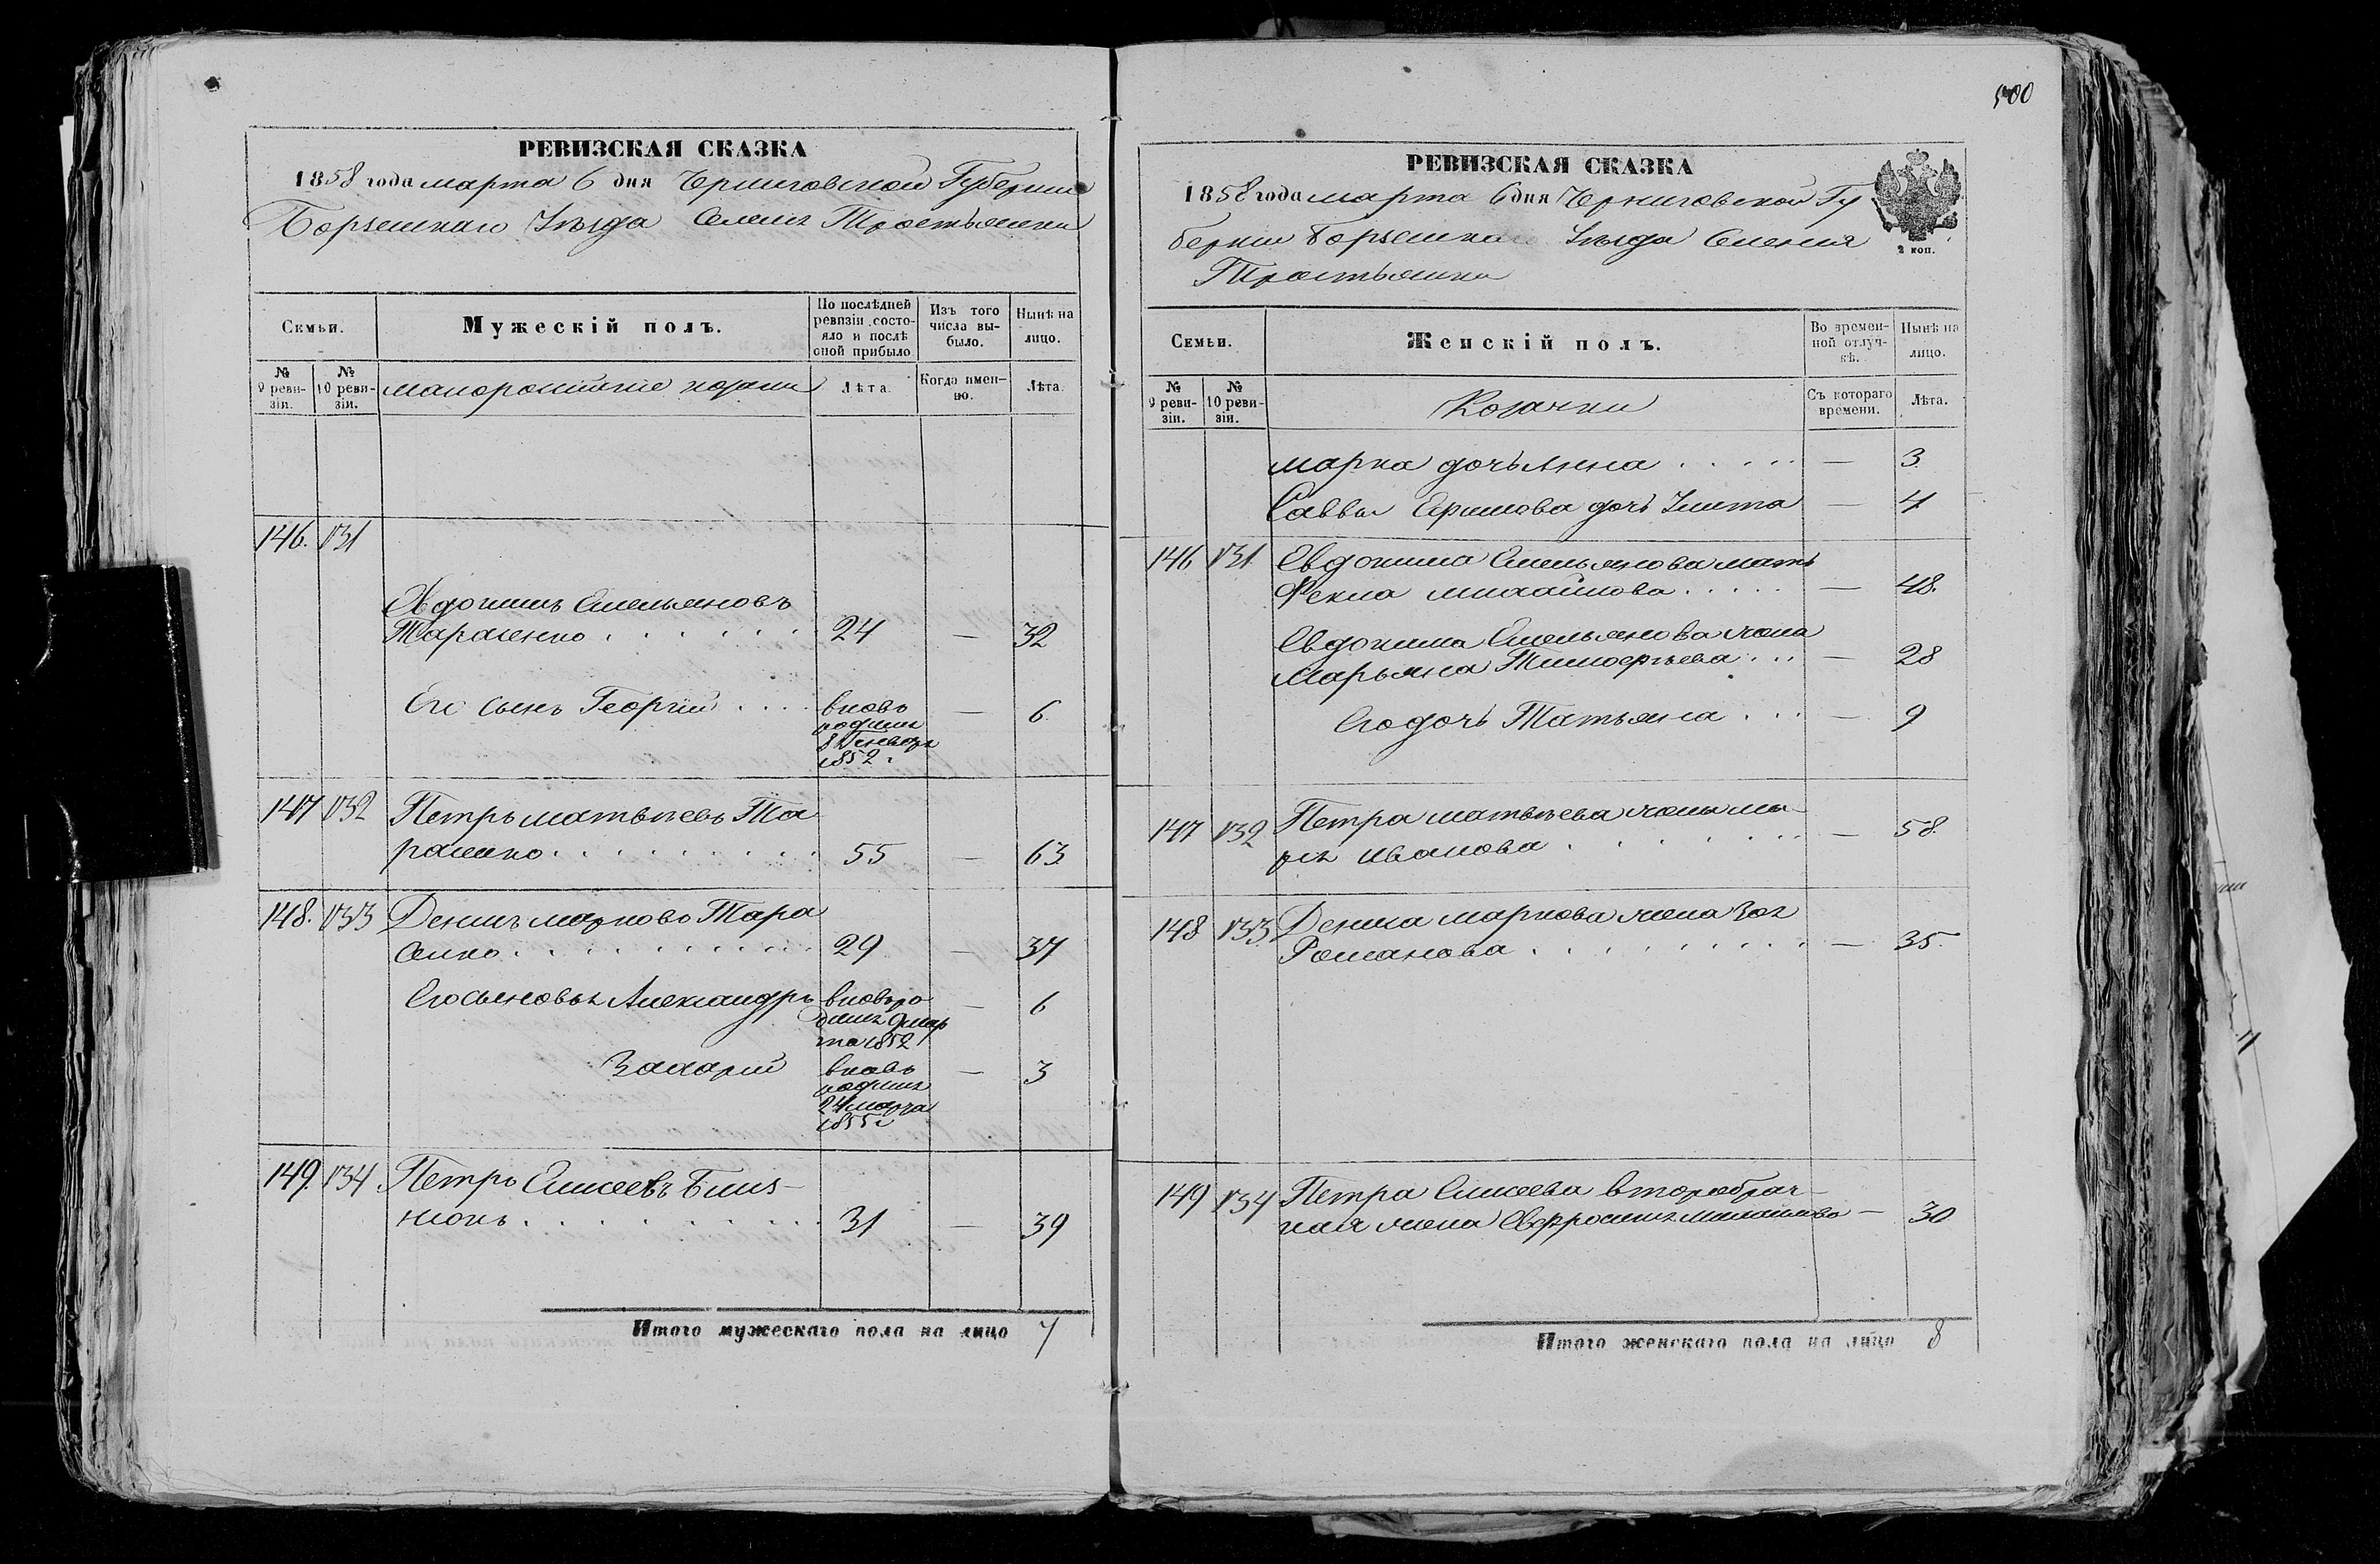 РЕВИЗСКАЯ СКАЗКА
1858 года марта 6 дня Черниговской Губернии
Борзенскаго Уѣзда Селенія Тростьянки
Семьи.
Мужескій полъ.
По послѣдней
ревизіи состо-
яло и послѣ
оной прибыло
Изъ того
числа вы-
было.
Нынѣ на
лицо.
№
9 реви-
зіи.
№
10 реви-
зіи.
малороссійскіе козаки
Лѣта.
Когда имен-
но.
Лѣта.
146. 131
Евдокимъ Емельяновъ
Тарасенко . . . . . . 24 — 32
Его сынъ Георгій . . . . вновь — 6.
родился
8 Генваря
1852 г
147 132 Петръ Матвѣевъ Та
расенко . . . . . . . . . 55 — 63
148. 133 Денисъ Марковъ Тара
сенко . . . . . . . . . 29 — 37
Его сыновья Александръ вновь ро — 6
дился 9 мар
та 1852
Захарій вновь — 3
родился
24 марта
1855 г
149. 134 Петръ Елисеевъ Близ-
нюкъ . . . . . . . . . 31 — 39
Итого мужескаго пола на лицо 7
500
РЕВИЗСКАЯ СКАЗКА
1858 года марта 6 дня Черниговской Гу
берніи Борзенскаго Уѣзда Селенія
Тростьянки
2 коп.
Семьи.
Женскій полъ.
Во времен-
ной отлуч-
кѣ.
Нынѣ на
лицо.
№
9 реви-
зіи.
№
10 реви-
зіи.
Козачки
Съ котораго
времени.
Лѣта.
Марка дочь Анна . . . . . — 3.
Саввы дочь — 4
146 131 Евдокима Емельянова мать
Фекла Михайлова . . . . . — 48.
Евдокима Емельянова жена
Марьяна Тимофеева . . . — 28
Его дочь Татьяна . . . — 9
147 132 Петра Матвѣева жена Ма-
рія Иванова . . . . . . — 58.
148 133 Дениса Маркова жена Зоя
Романова . . . . . . . . . — 35.
149 134 Петра Елисеева второбрач-
ная жена Евфросинія — 30
Итого женскаго пола на лицо 8